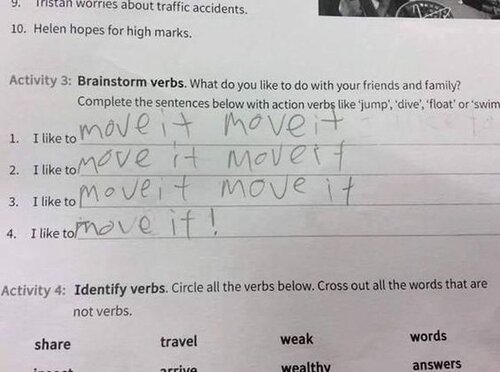 9. Tristan worries about traffic accidents.
10. Helen hopes for high marks.
Activity 3: Brainstorm verbs. What do you like to do with your friends and family?
Complete the sentences below with action verbs like 'jump', 'dive', 'float' or 'swim
1. I like to move it move it
2. I like to move it move it
3. I like to move it move it
4. I like to move it!
Activity 4: Identify verbs. Circle all the verbs below. Cross out all the words that are
not verbs.
share travel weak words
insect arrive wealthy answers